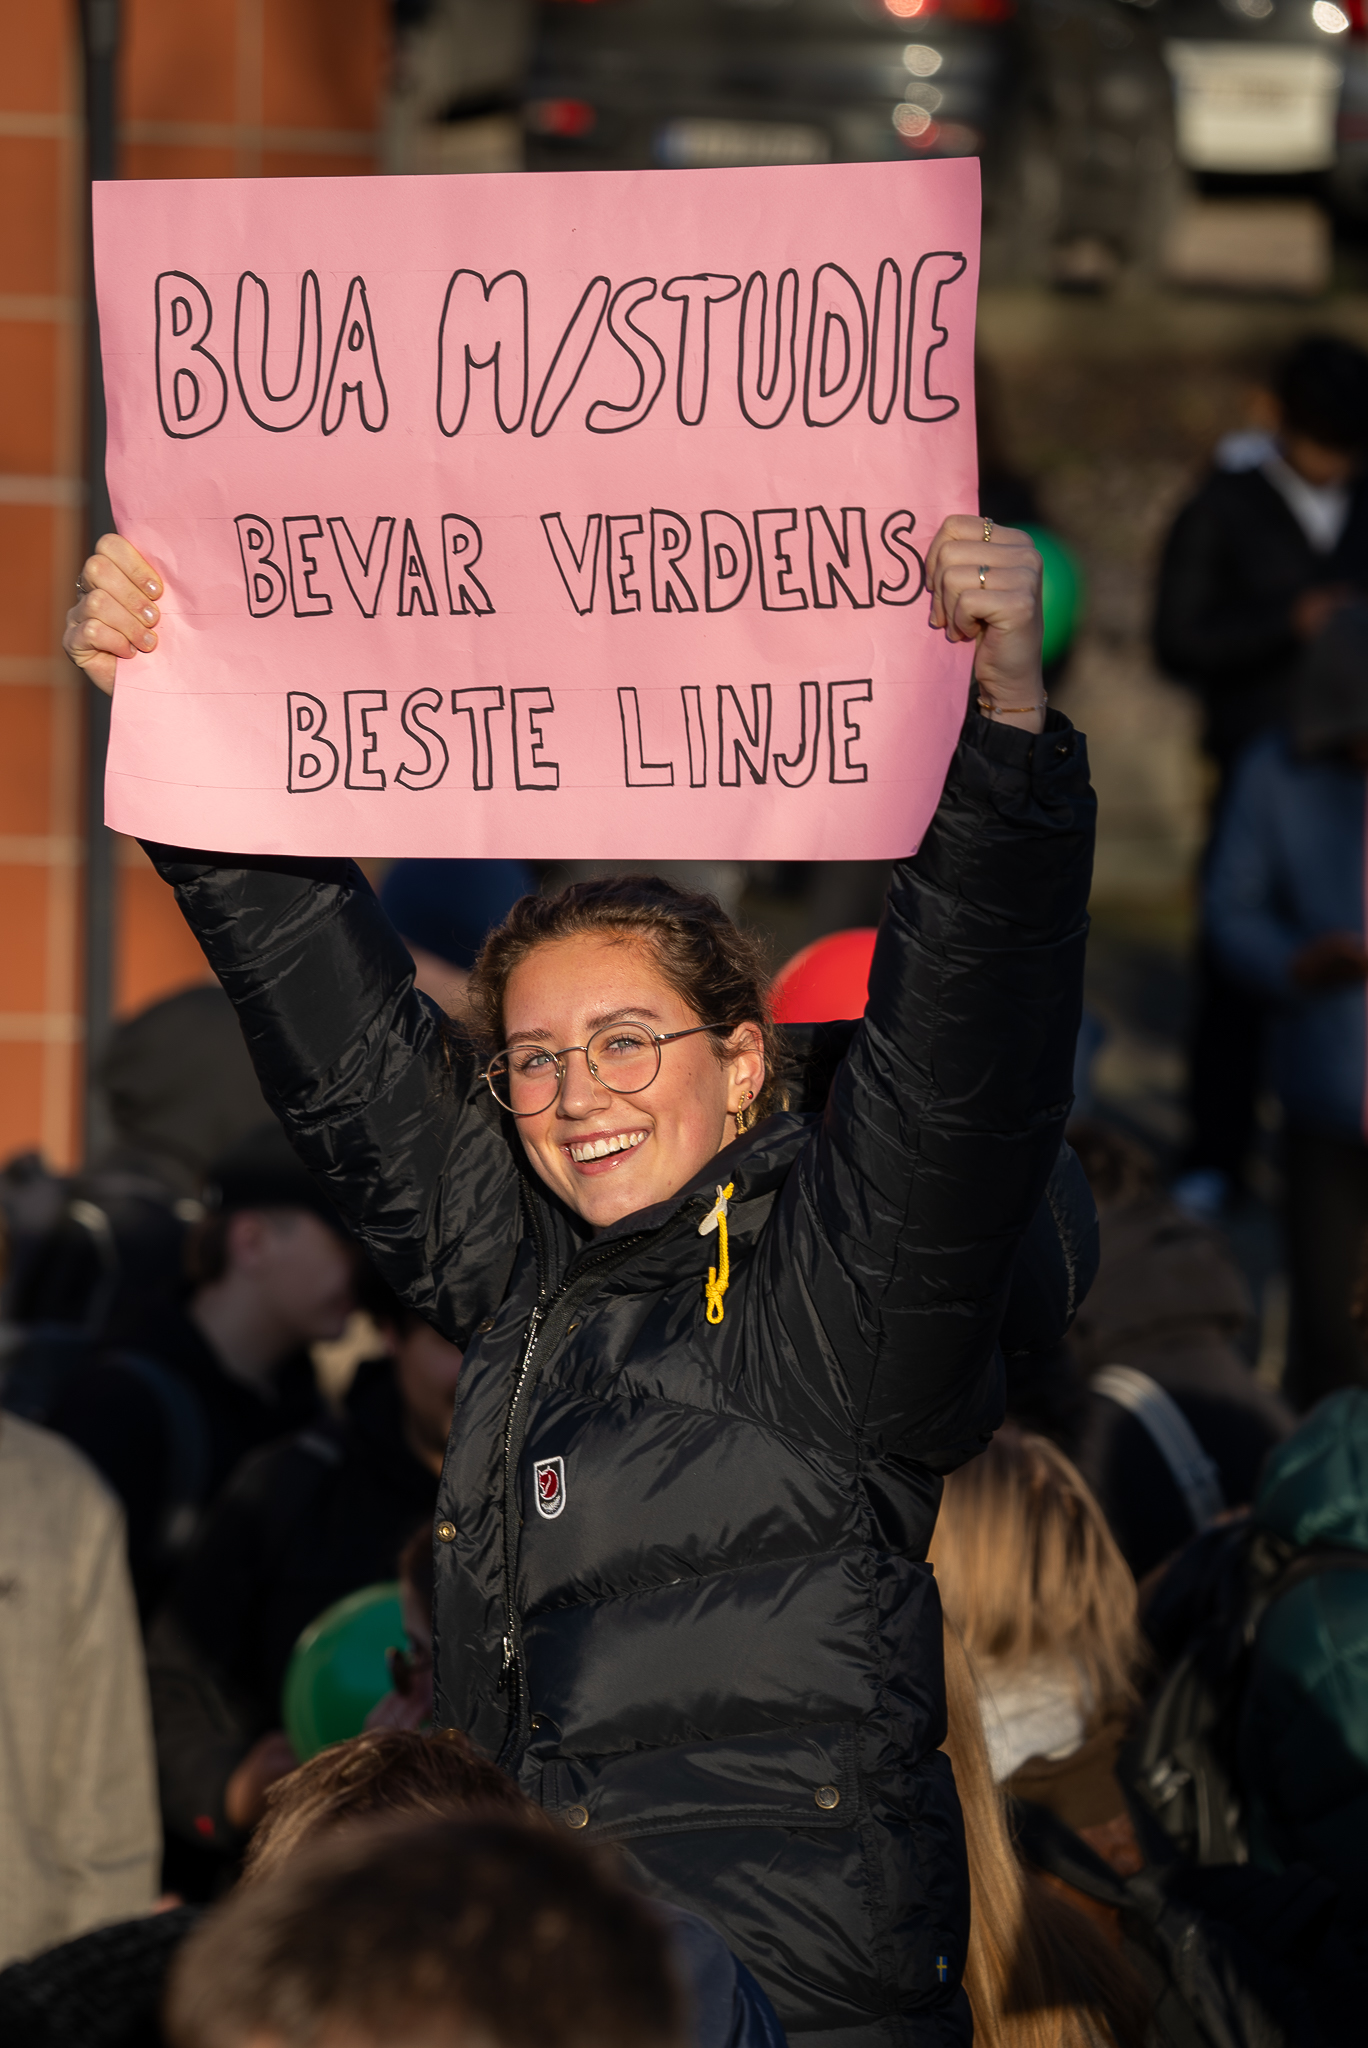 BUA M/STUDIE
BEVAR VERDENS
BESTE LINJE